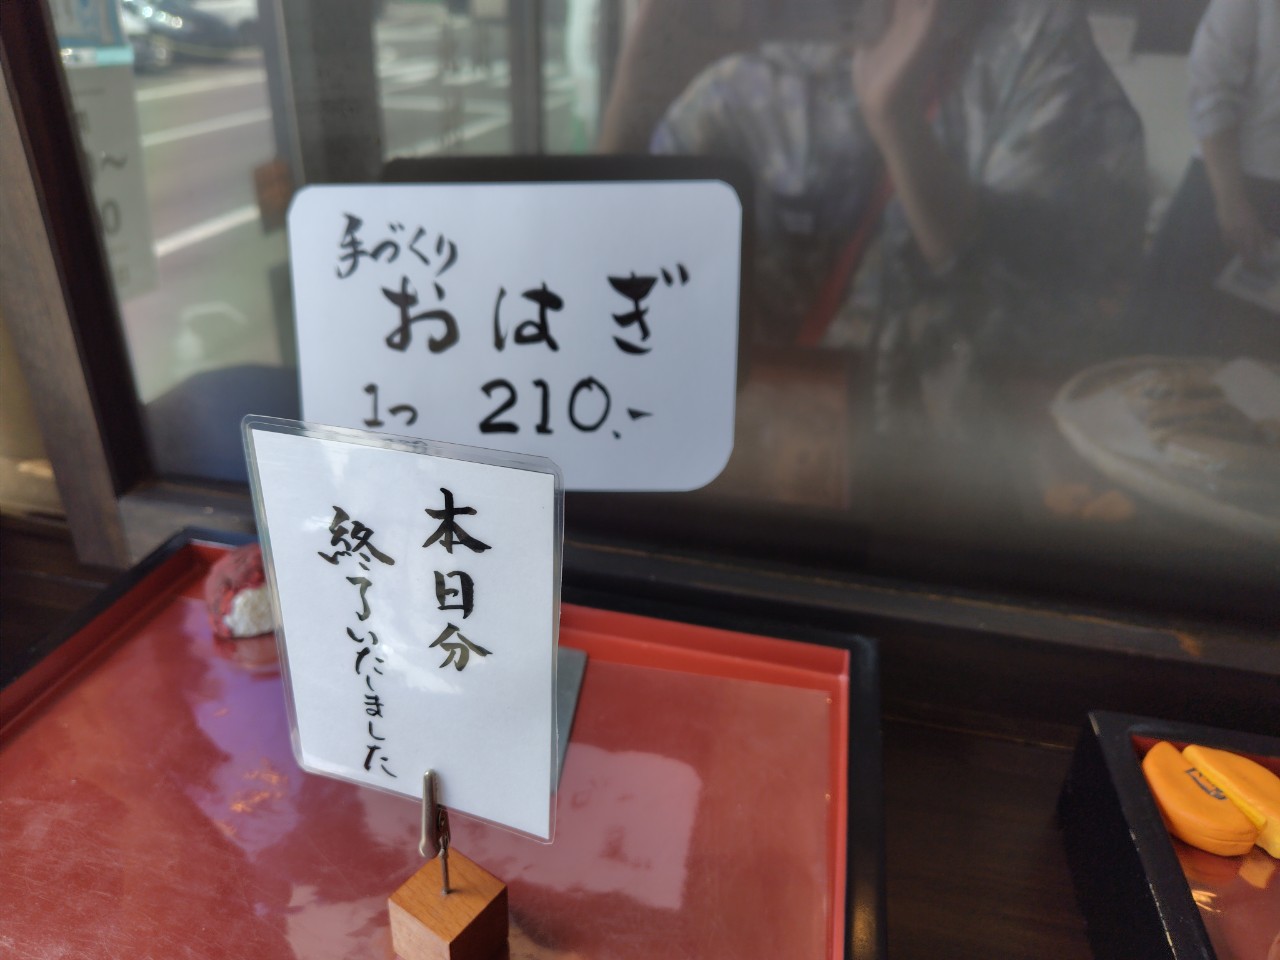 手づくり
おはぎ
1つ 210.-
本日分
終了いたしました